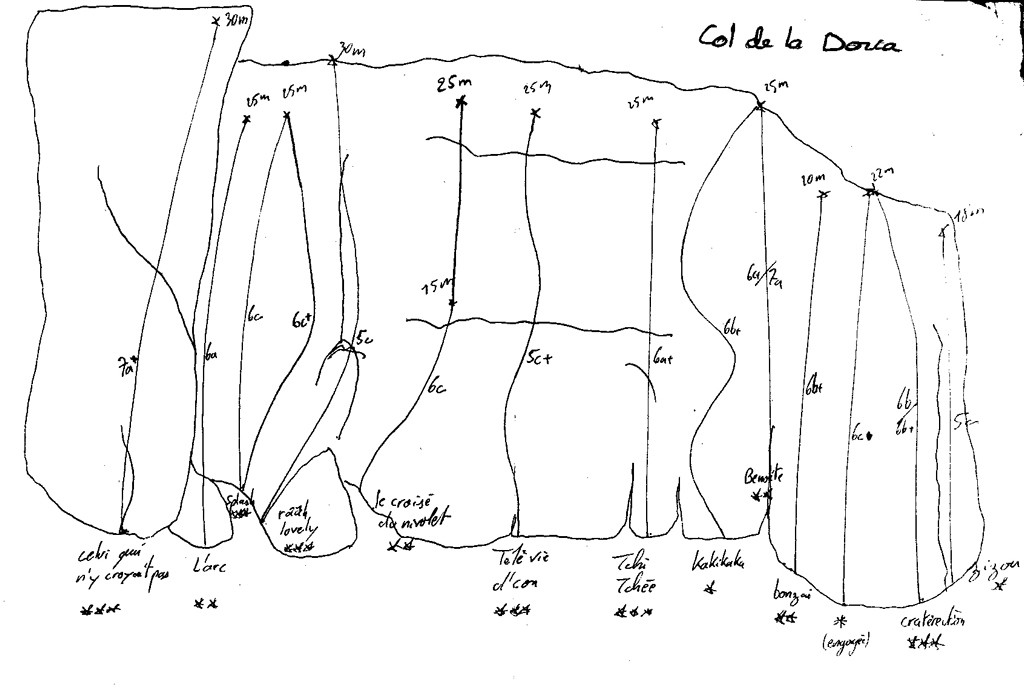 Col de la Dorca
30m
30m
25m
25m
25m
25m
25m
25m
20m
22m
18m
15m
7a+
6a
6c
6c+
5c
6c
5c+
6a+
6b+
6a/7a
6b+
6c
6b
6b+
5c
celui qui
n'y croyait pas
***
L'arc
**
Splash
**
rââh
lovely
***
le croisé
du nivolet
**
Télé vie
d'con
***
Tchi
Tchée
***
Kakikaka
*
**
bonzaï
**
*
(engagée)
***
zizou
*